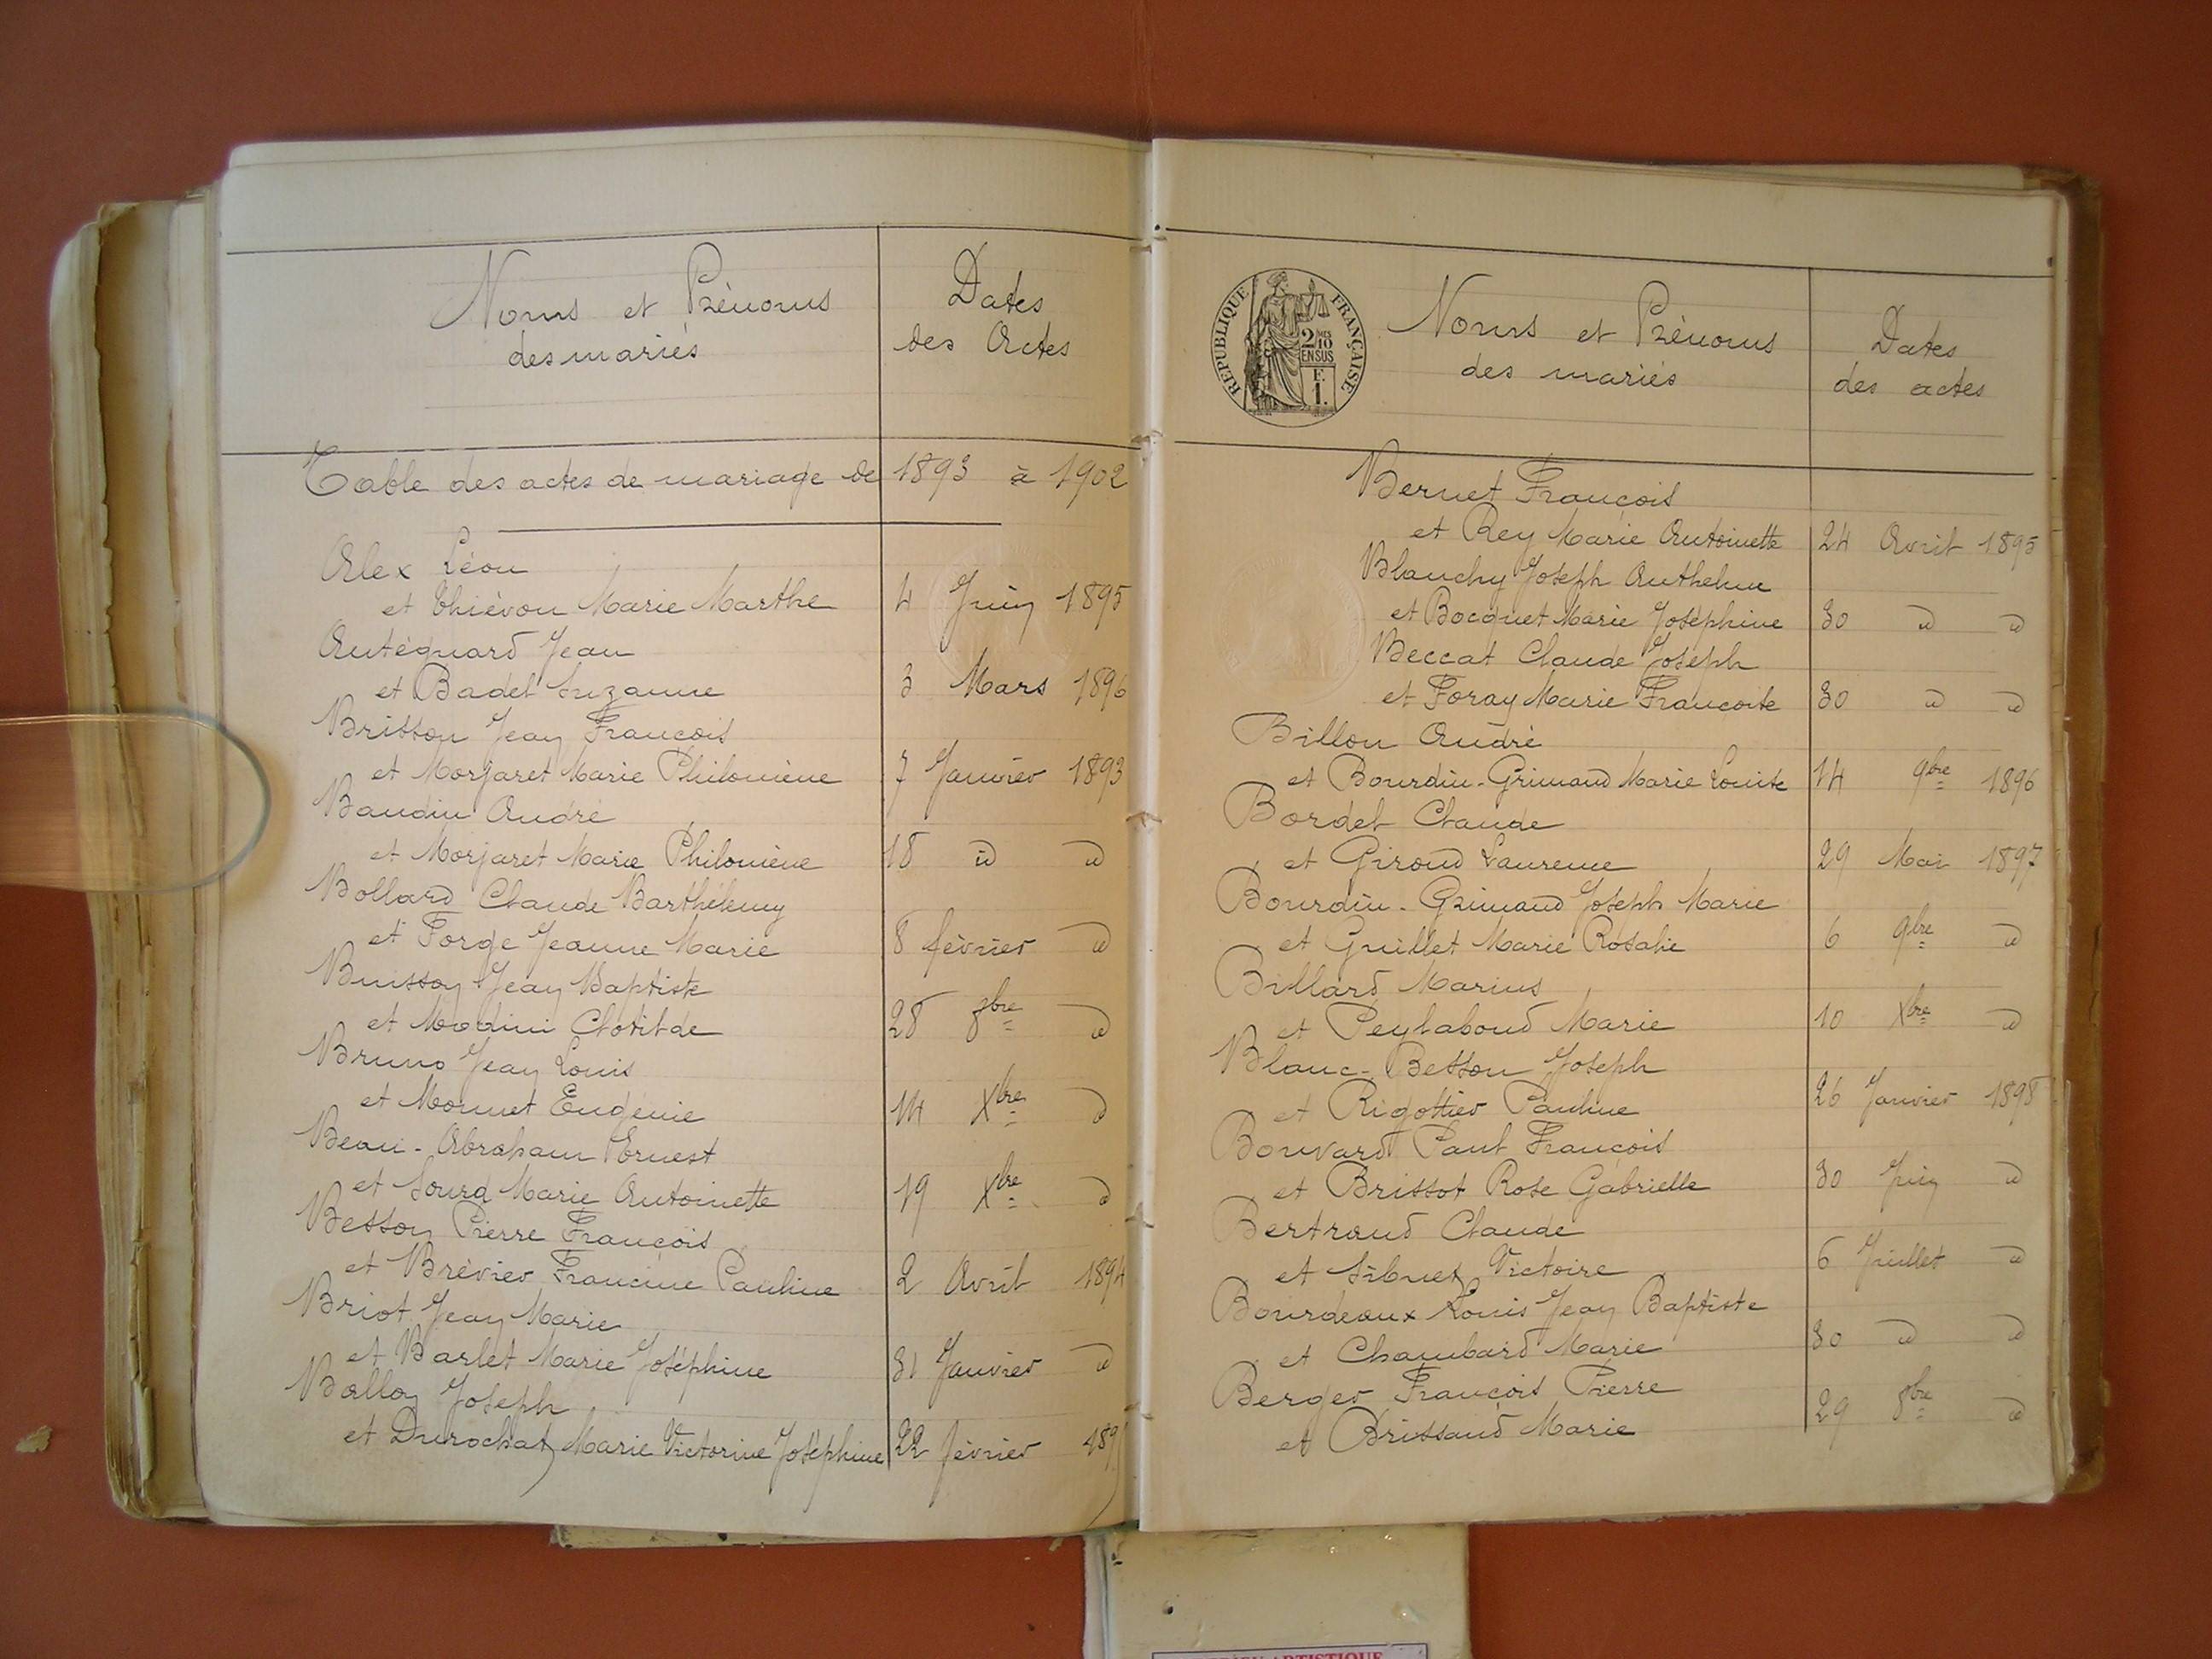 Noms et Prénoms
des mariés
Dates
des Actes
Table des actes de mariage de 1893 à 1902
Alex Léon
et Thiévon Marie Marthe 4 Juin 1895
Autéquard Jean
et Badel Suzanne 3 Mars 1896
Brisson Jean François
et Morjaret Marie Philomène 7 Janvier 1893
Baudin André
et Morjaret Marie Philomène 18 d d
Bollard Claude Barthélemy
et Forge Jeanne Marie 8 février d
Buisson Jean Baptiste
et Modini Clotilde 28 8bre d
Bruno Jean Louis
et Monnet Eugénie 14 Xbre d
Beau-Abraham Ernest
et Sourd Marie Antoinette 19 Xbre d
Besson Pierre François
et Brévier Francine Pauline 2 Avril 1894
Briot Jean Marie
et Barlet Marie Joséphine 31 Janvier d
Ballon Joseph
et Durochat Marie Victorine Joséphine 22 février 189
REPUBLIQUE FRANÇAISE
2/10 MES
EN SUS
F.
1.
Noms et Prénoms
des mariés
Dates
des actes
Bernet François
et Rey Marie Antoinette 24 Avril 1895
Blanchy Joseph Anthelme
et Bocquet Marie Joséphine 30 d d
Beccat Claude Joseph
et Foray Marie Françoise 30 d d
Billon André
et Bourdin-Grimaud Marie Louise 14 9bre 1896
Bordel Claude
et Giroud Laurence 29 Mai 1897
Bourdin-Grimaud Joseph Marie
et Guillet Marie Rosalie 6 9bre d
Billard Marius
et Peylaboud Marie 10 Xbre d
Blanc-Besson Joseph
et Rigottier Pauline 26 Janvier 1898
Bouvard Paul François
et Brissot Rose Gabrielle 30 Juin d
Bertrand Claude
et Sibuet Victoire 6 Juillet d
Bourdeaux Louis Jean Baptiste
et Chambard Marie 30 d d
Berger François Pierre
et Brissaud Marie 29 8bre d
ARTISTIQUE